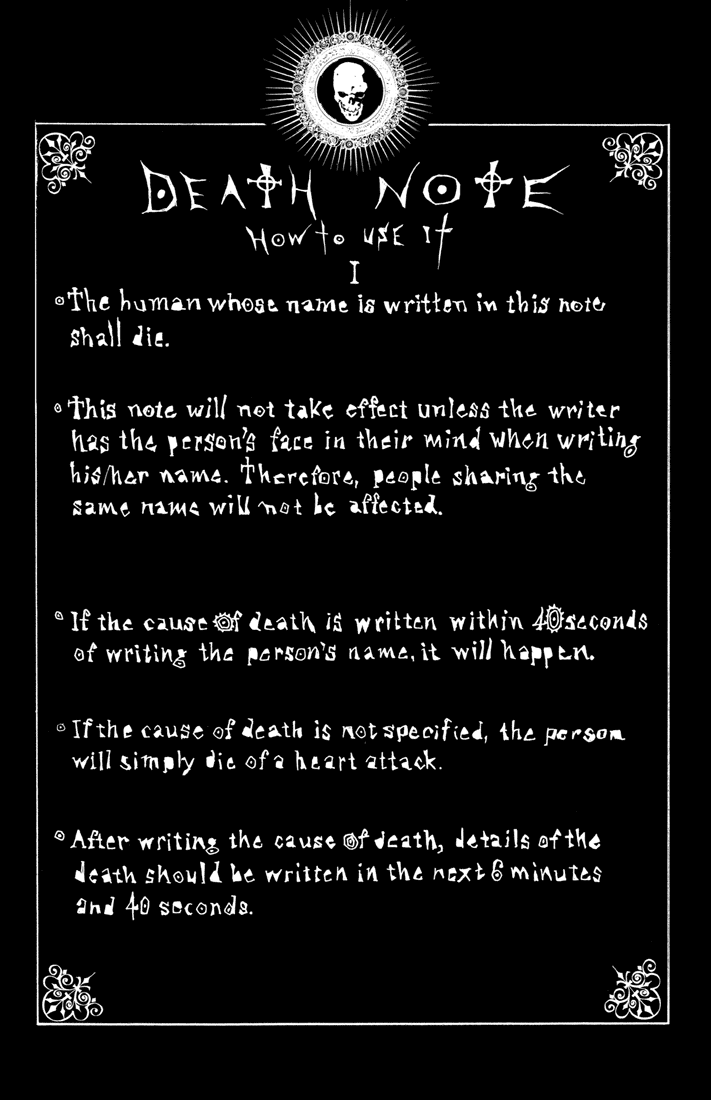 DEATH NOTE
HOW to USE IT
I
The human whose name is written in this note
shall die.
This note will not take effect unless the writer
has the person's face in their mind when writing
his/her name. Therefore, people sharing the
same name will not be affected.
If the cause of death is written within 40 seconds
of writing the person's name, it will happen.
If the cause of death is not specified, the person
will simply die of a heart attack.
After writing the cause of death, details of the
death should be written in the next 6 minutes
and 40 seconds.